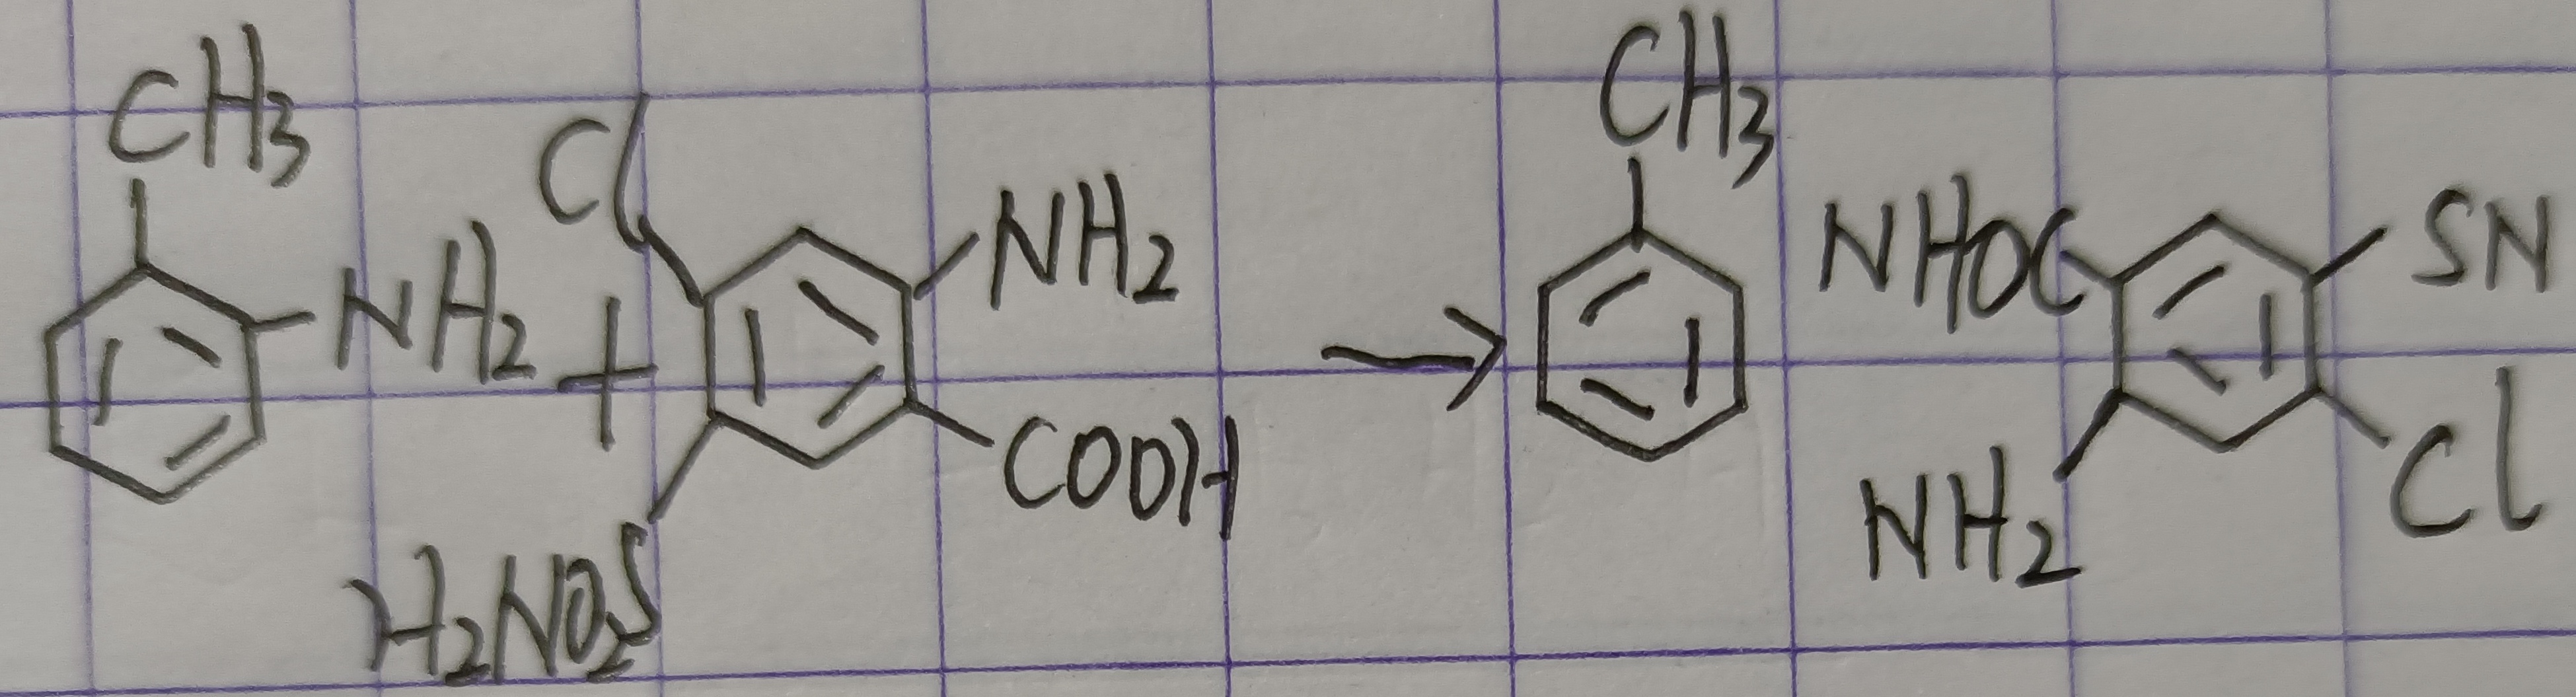 CH3
NH2
+
Cl
NH2
COOH
H2NO2S
→
CH3
NHOC
SN
NH2
Cl